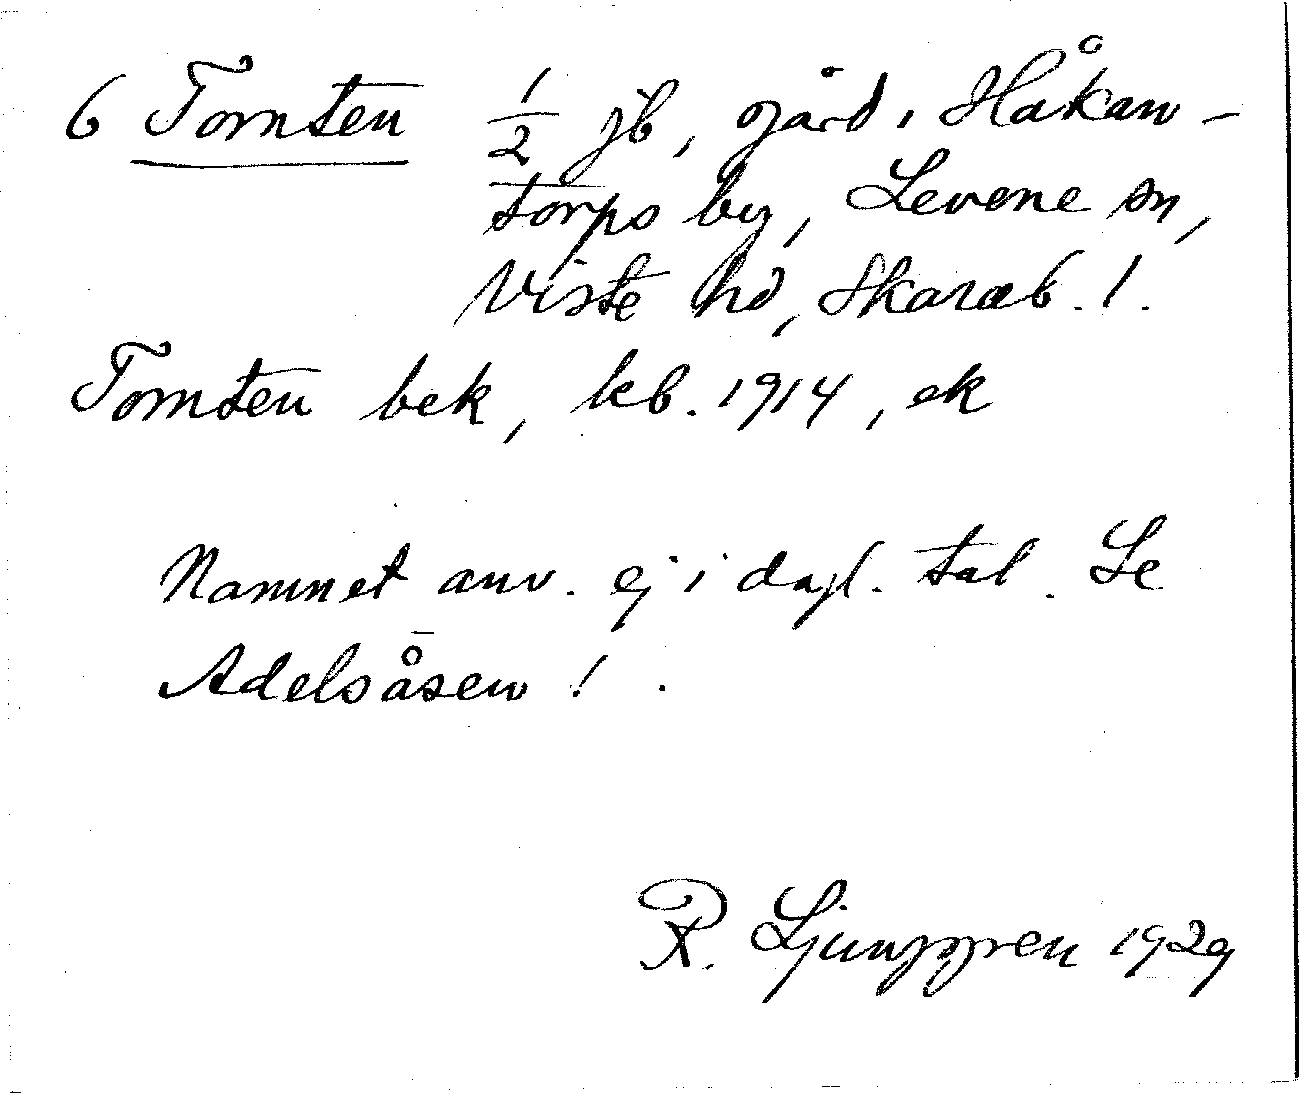 6 Tomten 1/2 jb, gård i Håkan-
torps by, Levene sn,
Viste hd, Skarab. l.
Tomten bek, leb. 1914, ek
Namnet anv. ej i dagl. tal. Se
Adelsåsen ! .
R. Ljunggren 1929